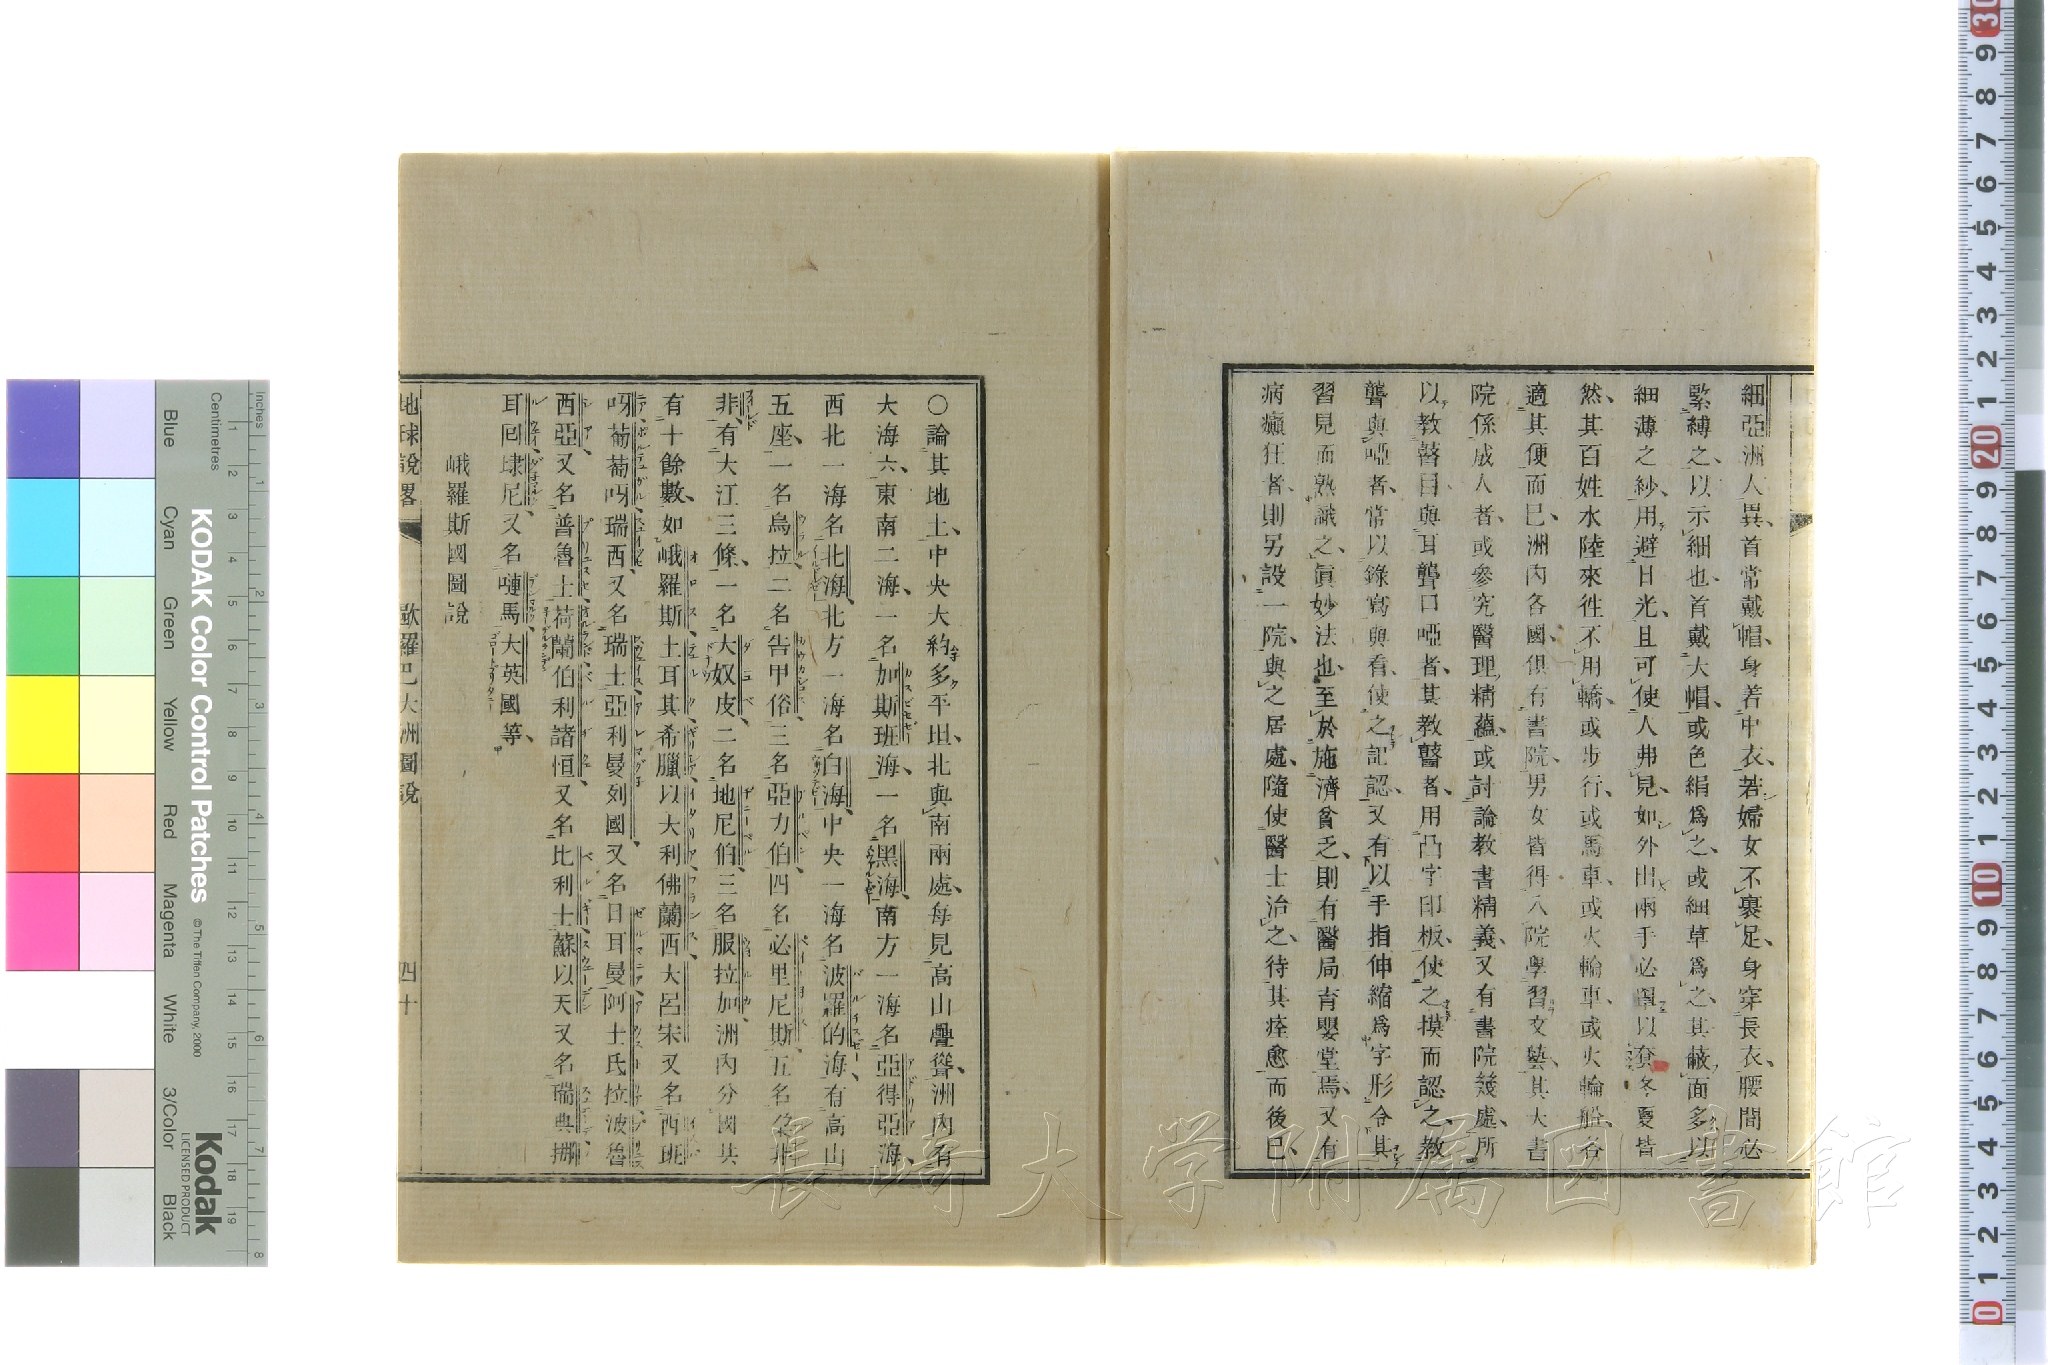 細亞洲人異、首常戴帽、身若中衣、若婦女不裹足、身穿長衣、腰間必
緊縛之、以示細也、首戴大帽、或色絹爲之、或細草爲之、其蔽面多以
細薄之紗、用避日光、且可使人弗見、如外出兩手必罩以套、冬夏皆
然、其百姓水陸來徃不用轎、或步行、或馬車、或火輪車、或火輪船、各
適其便而已、洲內各國、俱有書院、男女皆得入院學習文藝、其大書
院係成人者、或參究醫理精蘊、或討論教書精義、又有書院幾處、所
以教瞽目與耳聾口啞者、其教瞽者、用凸字印板、使之摸而認之、教
聾與啞者、常以錄寫與看、使之記認、又有以手指伸縮爲字形、令其
習見而熟識之、眞妙法也、至於施濟貧乏、則有醫局育嬰堂焉、又有
病癲狂者、則另設一院、與之居處、隨使醫士治之、待其痊愈而後已、
〇論其地土、中央大約多平坦、北與南兩處、每見高山疊聳、洲內有
大海六、東南二海、一名加斯班海、一名黑海、南方一海名亞得亞海、
西北一海名北海、北方一海名白海、中央一海名波羅的海、有高山
五座、一名烏拉、二名告甲俗、三名亞力伯、四名必里尼斯、五名
非、有大江三條、一名大奴皮、二名地尼伯、三名服拉加、洲內分國共
有十餘數、如峨羅斯、土耳其、希臘、以大利、佛蘭西、大呂宋又名西班
呀、葡萄呀、瑞西又名瑞士、亞利曼列國又名日耳曼、阿士氏拉、波魯
西亞又名普魯士、荷蘭、伯利諸恒又名比利士、蘇以天又名瑞典、挪
耳回、埭尼又名嗹馬、大英國等、
峨羅斯國圖說
地球說畧
歐羅巴大洲圖說
四十
長崎大学附属図書館
KODAK Color Control Patches
© The Tiffen Company, 2000
Kodak
LICENSED PRODUCT
Inches
Centimetres
Blue
Cyan
Green
Yellow
Red
Magenta
White
3/Color
Black